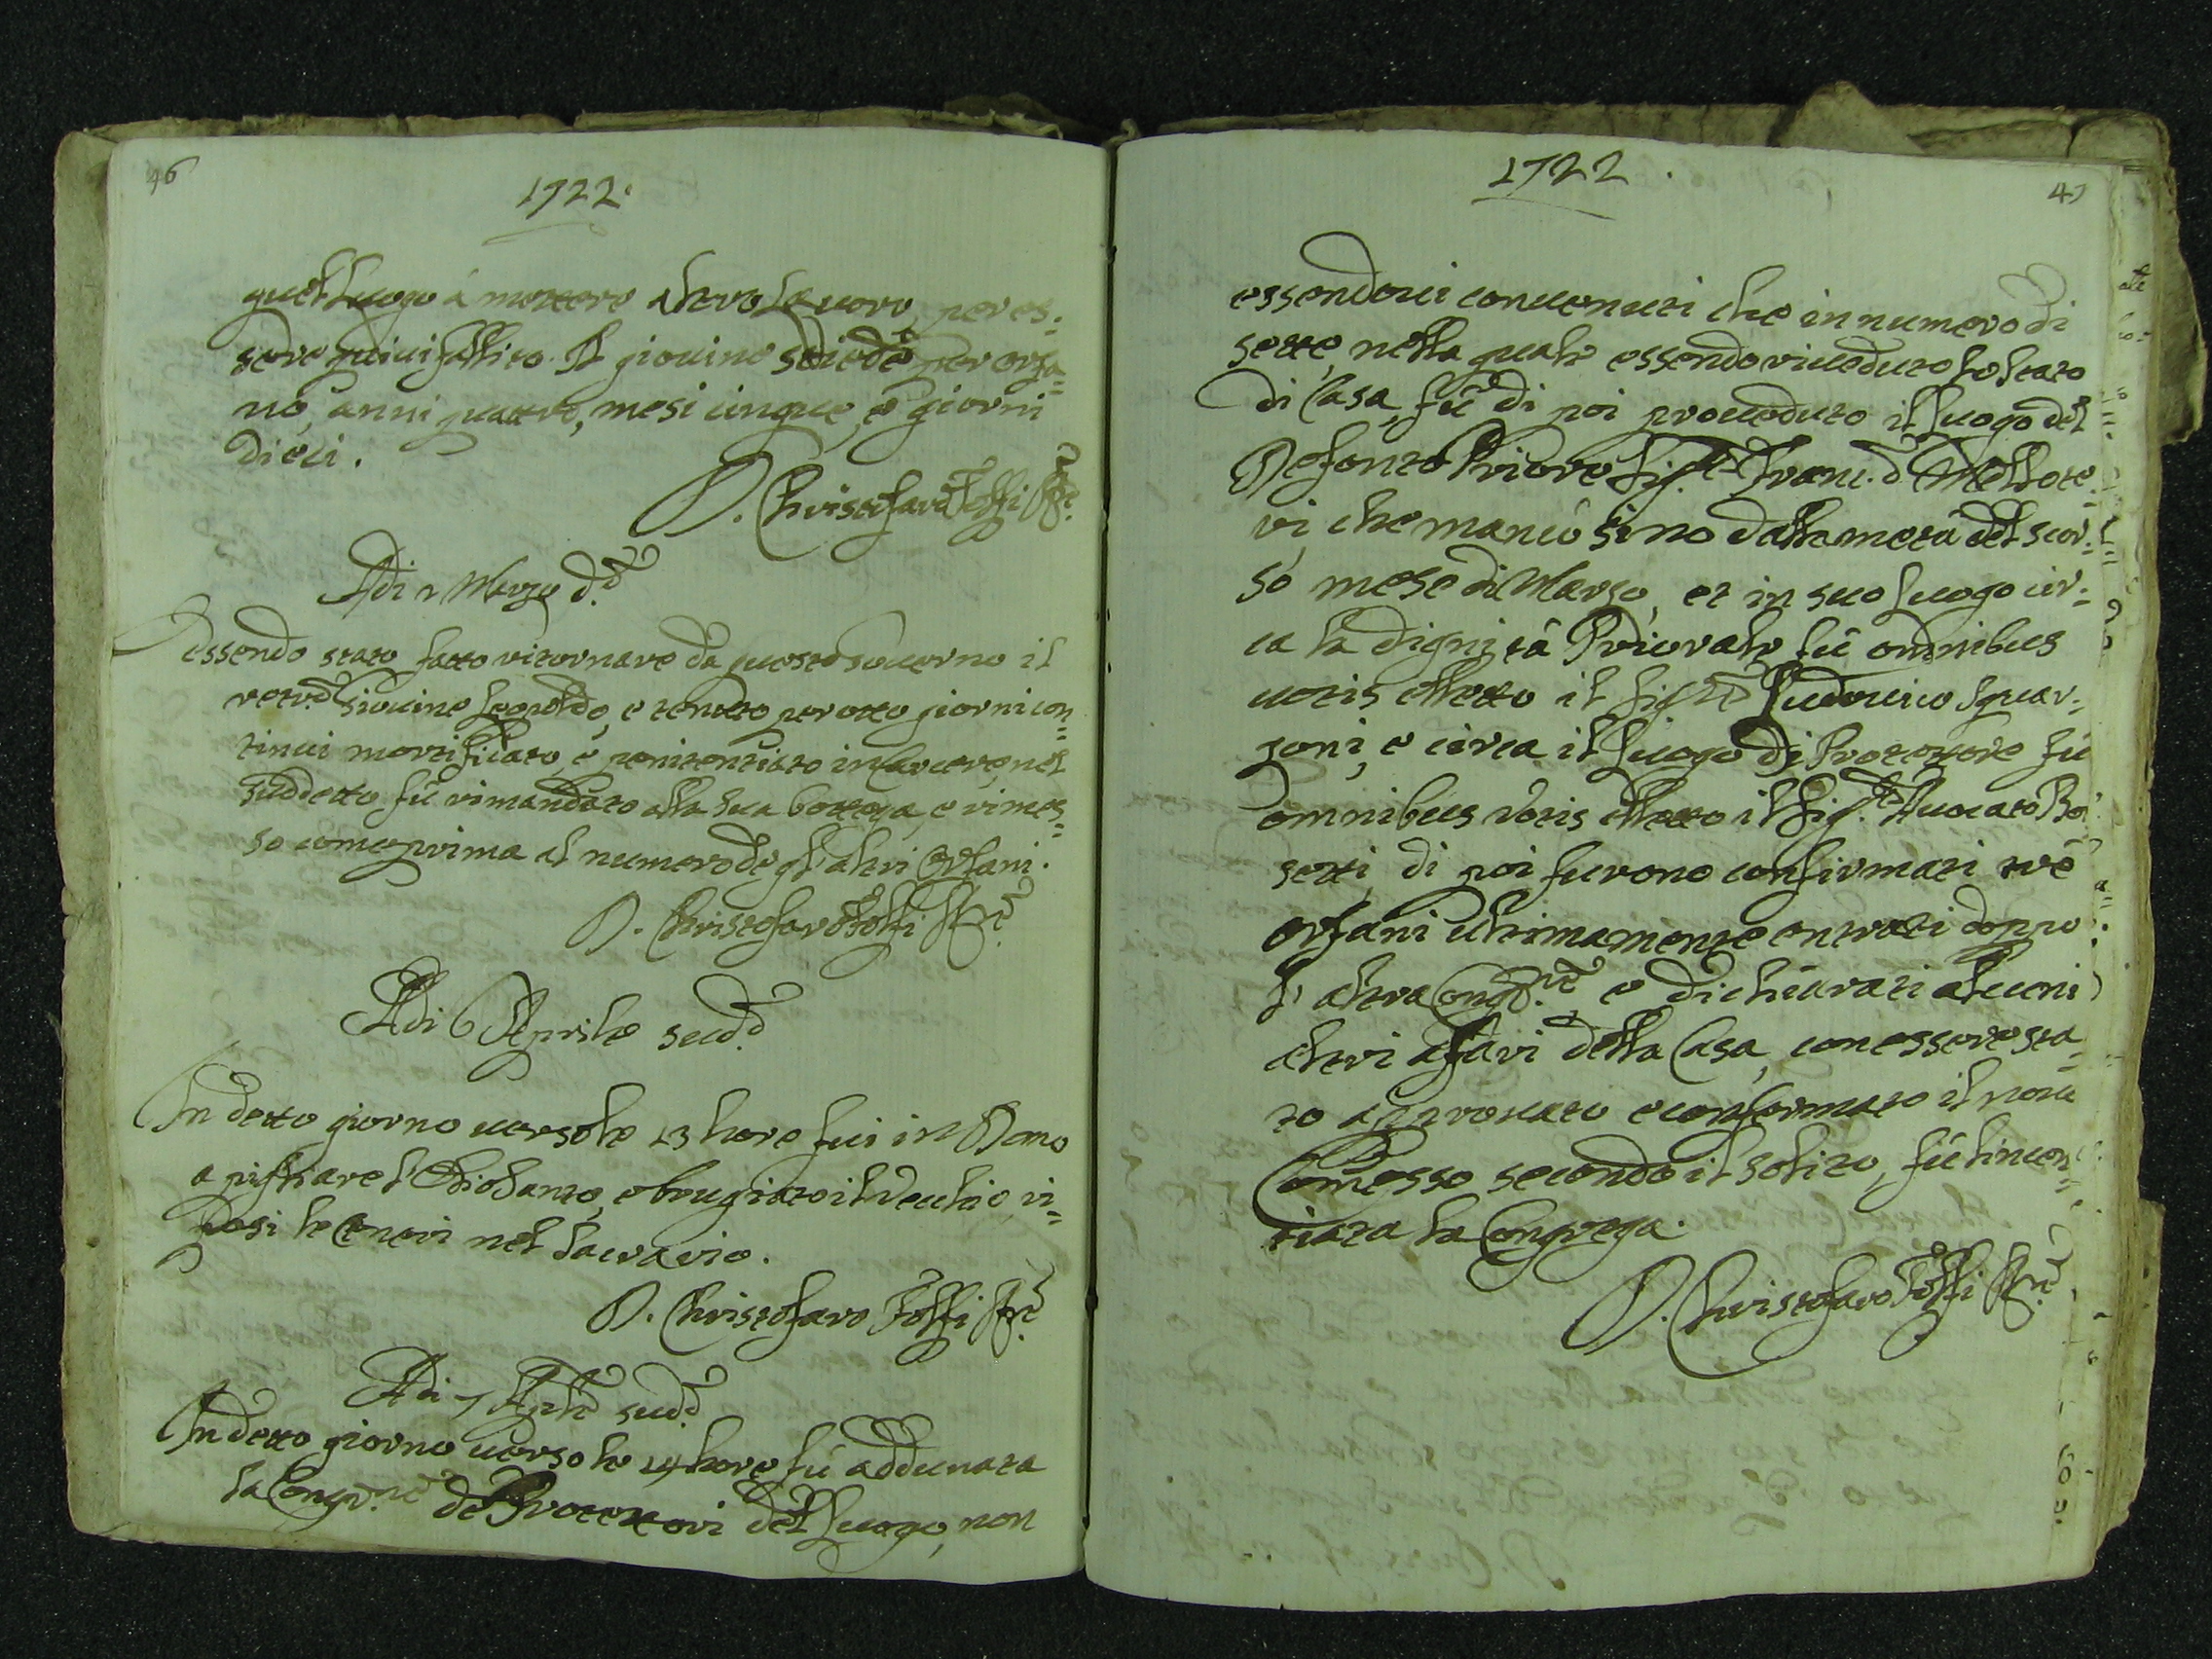 46
1722.
quel Luogo à mettere altro Lavoro, per es=
sere quivi fallito. Il giovine stiede per orfa=
no, anni quattro, mesi cinque, e giorni
dieci.
D. Christofaro Folfi
Adi Marzo d.º
Essendo stato fatto ritornare da questo Governo il
retro.º Giovine Leopoldo, e tenuto per otto giorni con=
tinui mortificato, e penitentiato in Carcere, nel
suddetto fù rimandato alla sua bottega, e rimes=
so come prima al numero de gl' altri Orfani.
D. Christofaro Folfi
Adi 6 Aprile sud.º
In detto giorno verso le 23 hore fui in
a pigliare l'Olio Santo, e brugiato il Vecchio, ri=
posi le Ceneri nel Sacrario.
D. Christofaro Folfi
Adi 7 Aprile sud.º
In detto giorno verso le 14 hore fù addunata
la Congr.ne de Protettori del Luogo, non
1722.
47
essendovi convenuti che in numero di
sette, nella quale essendo riveduto lo stato
di Casa, fù di poi proveduto il luogo del
Defonto Priore Sig.re Franc.º
vi che mancò sino dalla metà del scor=
so mese di Marzo, et in suo luogo cir=
ca la dignità Priorale fù omnibus
votis eletto il Sig.re Ludovico Squar=
zoni, e circa il Luogo di Protettore fù
omnibus votis eletto il Sig.re Avocato Ro
setti, di poi furono confirmati tre
orfani ultimamente entrati doppo
l' altra Congr.ne e dichiarati alcuni
altri affari della Casa, con essere sta=
to approvato e confermato il novo
Comesso secondo il solito, fù lincen=
tiata la Congrega.
D. Christofaro Folfi